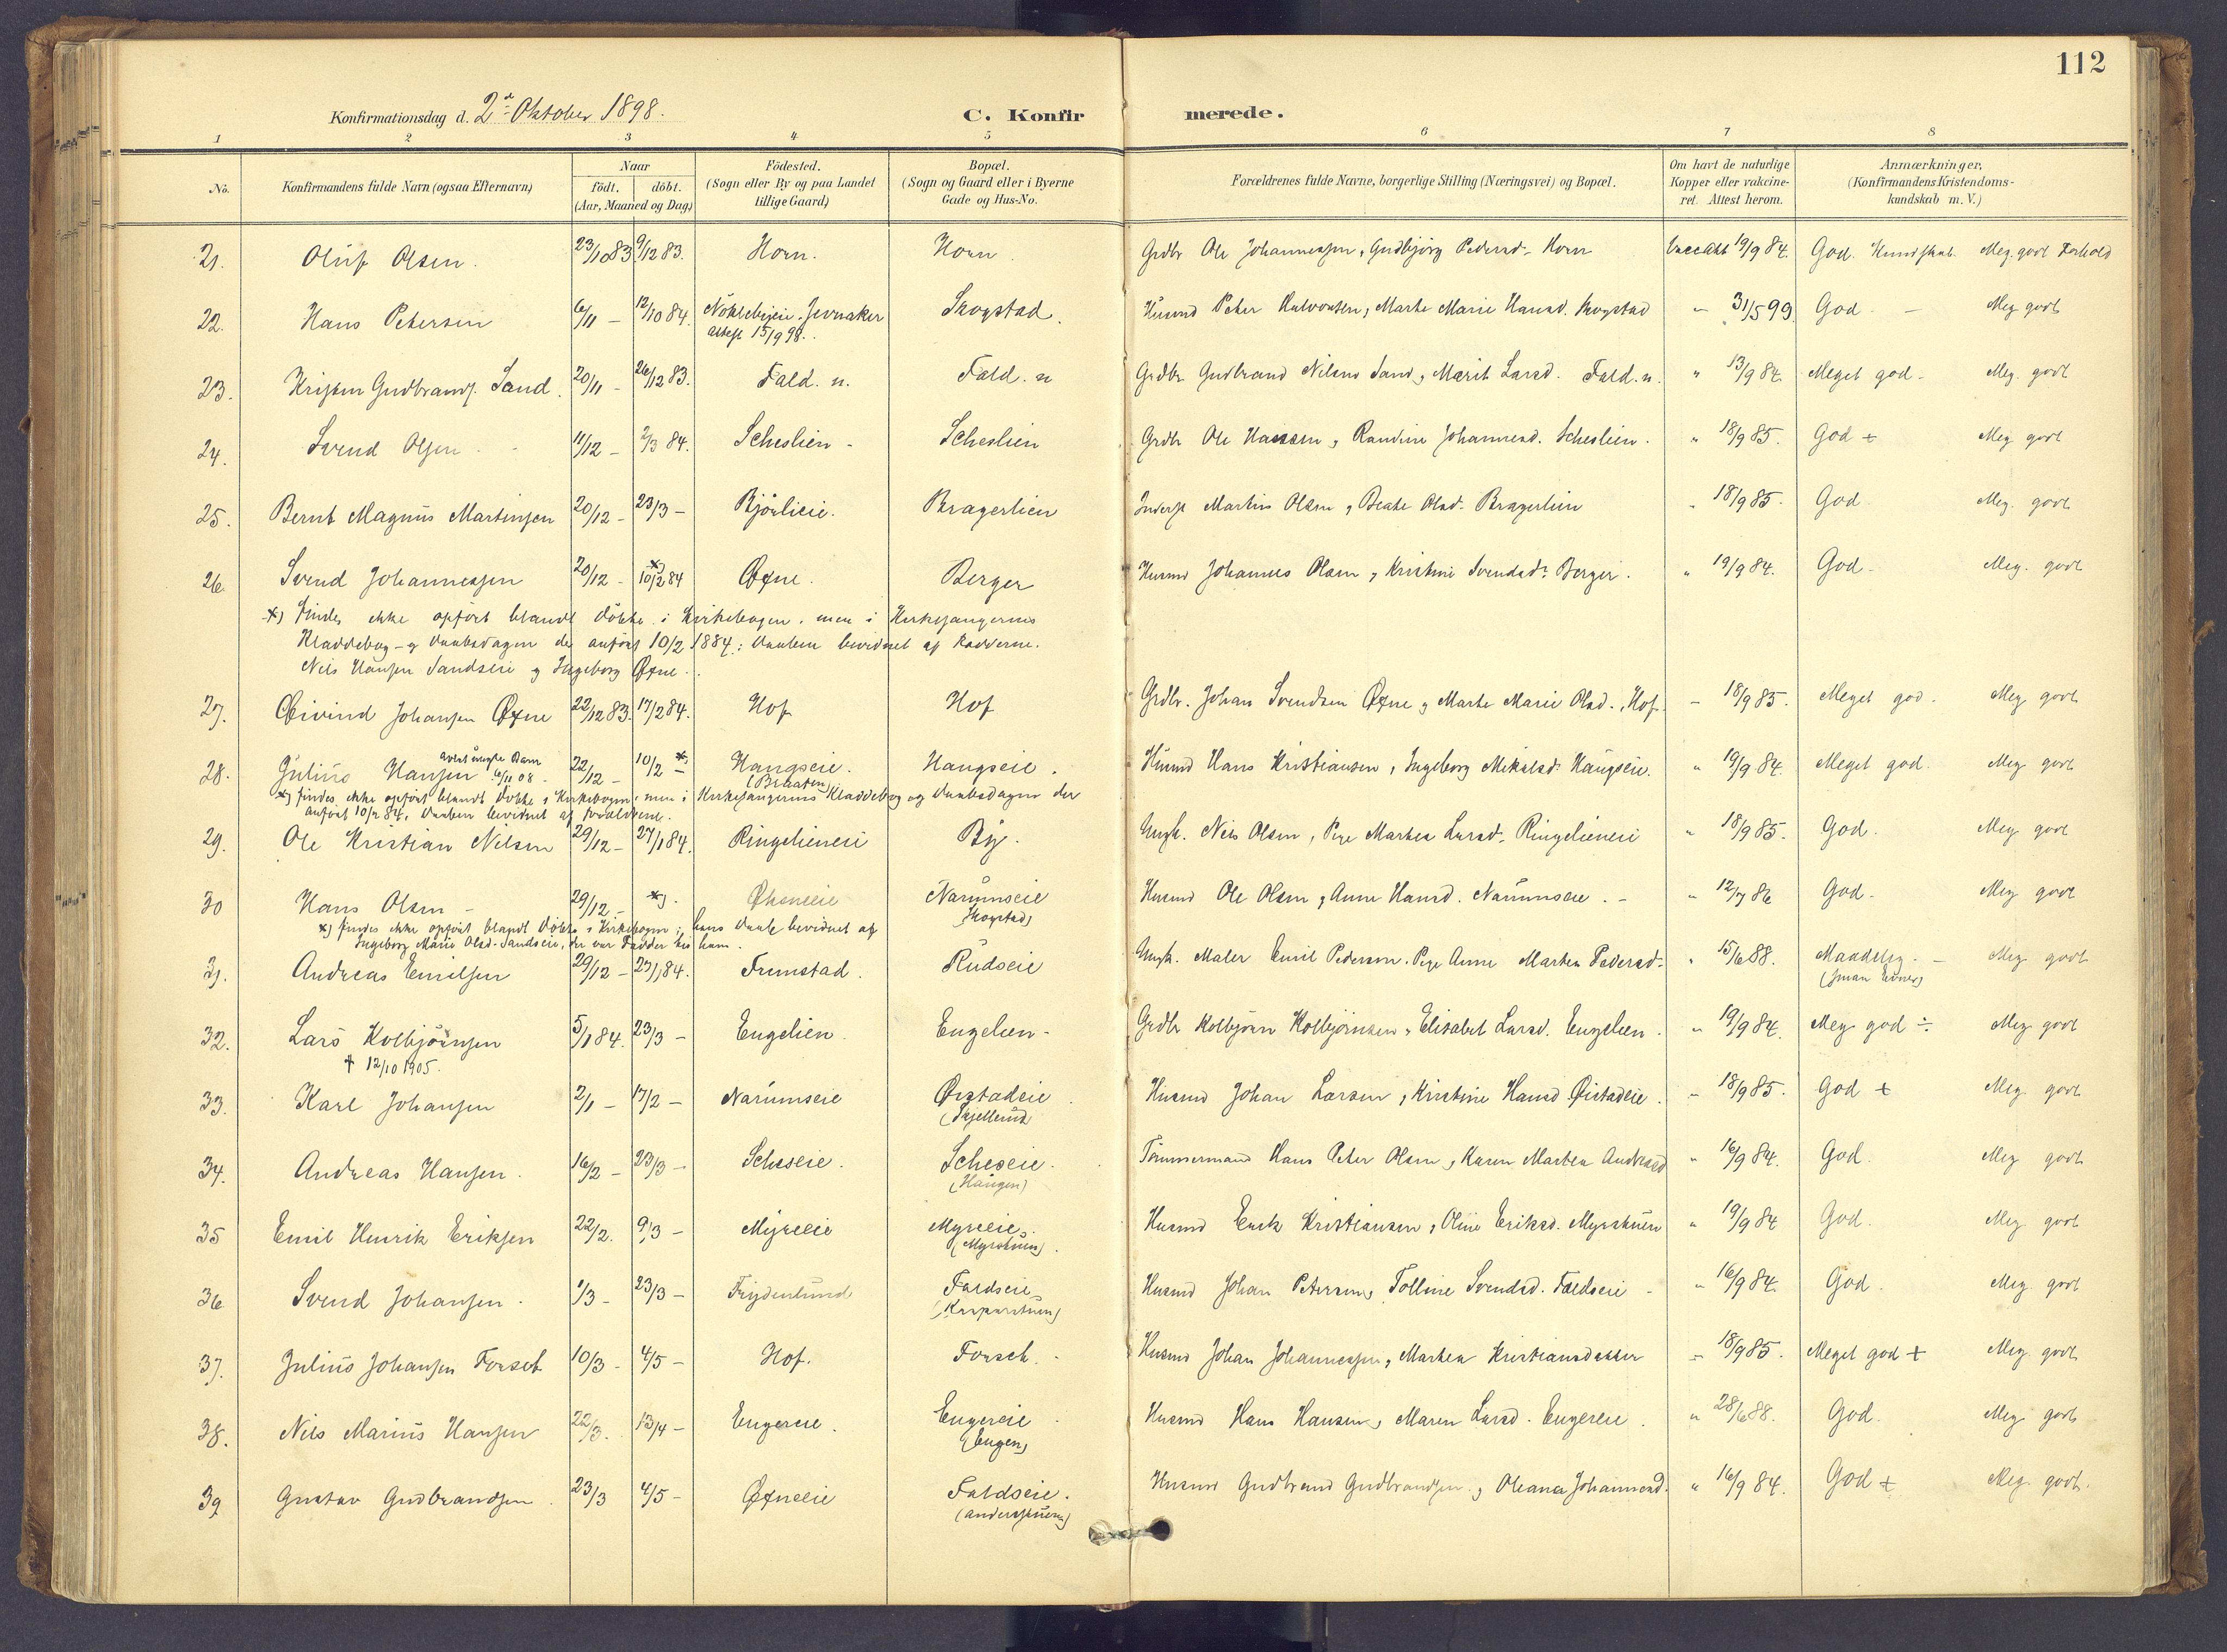 112
Konfirmationsdag d. 2d Oktober 1898.
C. Konfirmerede.
1 2 3 4 5 6 7 8
No. Konfirmandens fulde Navn (ogsaa Efternavn) Naar födt. döbt. (Aar, Maaned og Dag) Födested. (Sogn eller By og paa Landet tillige Gaard) Bopæl. (Sogn og Gaard eller i Byerne Gade og Hus-No. Forældrenes fulde Navne, borgerlige Stilling (Næringsvei) og Bopæl. Om havt de naturlige Kopper eller vakcineret. Attest herom. Anmærkninger, (Konfirmandens Kristendomskundskab m. V.)
21. Oluf Olsen. 23/10 83 9/12 83. Horn. Horn. Grdbr Ole Johannessen, Gudbjörg Pedersd. Horn 19/9 84. God. Kundskab. Meg. godt Forhold
22. Hans Petersen 6/11 – 12/10 84. Jevnaker Skogstad. Husmd Peter Halvorsen, Marte Marie Hansd. Skogstad " 31/5 99 God – Meg godt
attest 15/9 98.
23. Kristen Gudbrands. Sand. 20/11 – 26/12 83. Fald. n. Fald. n Grdbr Gudbrand Nilsens Sand, Marit Larsd. Fald. n. " 13/9 84. Meget god – Meg. godt
24. Svend Olsen 11/12 – 2/3 84. Scheslien – Scheslien Grdbr Ole Hansen, Randine Johannesd. Scheslien. " 18/9 85. God + Meg godt
25. Bernt Magnus Martinsen 20/12 – 23/3 – Bjönlieie. Bragerlien Inderst Martin Olsen, Beate Olsd. Bragerlien " 18/9 85. God Meg. godt
26 Svend Johannessen 20/12 – *) 10/2 84 Øxne. Berger Husmd Johannes Olsen, Kristine Svendsd. Berger. " 19/9 84. God – Meg. godt
*) findes ikke opfört blandt döbte i Kirkebogen, men i Kirkesangerens
Kladdebog – og Daabsdagen der anfört 10/2 1884: Daaben bevidnet af Fadderne.
Nils Hansen Sandseie og Ingeborg Øxne.
27. Eivind Johansen Øxne 22/12 83. 17/2 84. Hof Hof Grdbr. Johan Svendsen Øxne, Marte Marie Olsd. Hof. – 18/9 85. Meget god. Meg godt
28. Julius Hansen 22/12 – 10/2 – *) Haugseie. (Braaten) Haugseie. Husmd Hans Kristiansen, Ingeborg Mikalsd. Haugseie. " 19/9 84. Meget god. Meg godt
*) findes ikke opfört blandt döbte i Kirkebogen, men i Kirkesangerens Kladdebog og Daabsdagen der
anfört 10/2 84, Daaben bevidnet af Forældrene.
29. Ole Kristian Nilsen 29/12 – 27/1 84. Ringelieneie By. Ungk. Nils Olsen, Pige Marthea Larsd. Ringelieneie " 18/9 85. God. Meg godt
30 Hans Olsen – 29/12 – *). Narumseie (Skogstad) Husmd Ole Olsen, Anne Hansd. Narumseie. – " 12/7 86 God. Meg godt
*) findes ikke opfört blandt döbte i Kirkebogen; hans Daab bevidnet af
Ingeborg Marie Olsd. Sandseie, der var Fadder hos ham.
31. Andreas Emilsen 29/12 – 27/1 84. Frimstad. Rudseie Ungk. Maler Emil Pedersen. Pige Anne Marthea Pedersd. " 15/6 88. Maadelig. – (smaa Evner) Meg godt
32. Lars Kolbjörnsen 5/1 84. 23/3 – Engelien. Engelien – Grdbr Kolbjörn Kolbjörnsen, Elisabet Larsd. Engelien. " 19/9 84. Meg god ÷ Meg godt
† 12/10 1905.
33. Karl Johansen 2/1 – 17/2 – Narumseie Øistadeie (Skjellerud) Husmd Johan Larsen, Kristine Hansd Øistadeie. – 18/9 85. God + Meg. godt
34. Andreas Hansen. 16/2 – 23/3 – Scheseie. Scheseie. (Haugen) Tömmermand Hans Peter Olsen, Karen Marthea Andreasd " 16/9 84. God. Meg godt
35 Emil Henrik Eriksen 22/2. 9/3 – Myreeie Myreeie. (Myrstuen). Husmd Erik Kristiansen, Oline Eriksd. Myrstuen " 19/9 84 God. Meg godt
36 Svend Johansen. 1/3 – 23/3 – Frydenlund Faldseie (Kasperstuen) Husmd Johan Petersen, Tolline Svendsd. Faldseie – " 16/9 84. God. Meg. godt
37. Julius Johansen Forset 10/3 – 4/5 – Hof. Forset. Husmd Johan Johannessen, Marthea Kristiansdatter – 18/9 85. Meget god + Meg. godt
38. Nils Marius Hansen 22/3. 13/4 – Engereie. Engereie (Engen) Husmd Hans Hansen, Maren Larsd. Engereie. " 28/6 88. God. Meg godt
39 Gustav Gudbrandsen. 23/3 4/5 – Øxneeie Faldseie. (Anderstuen) Husmd Gudbrand Gudbrandsen, Oleana Johannesd. " 16/9 84. God + Meg. godt.